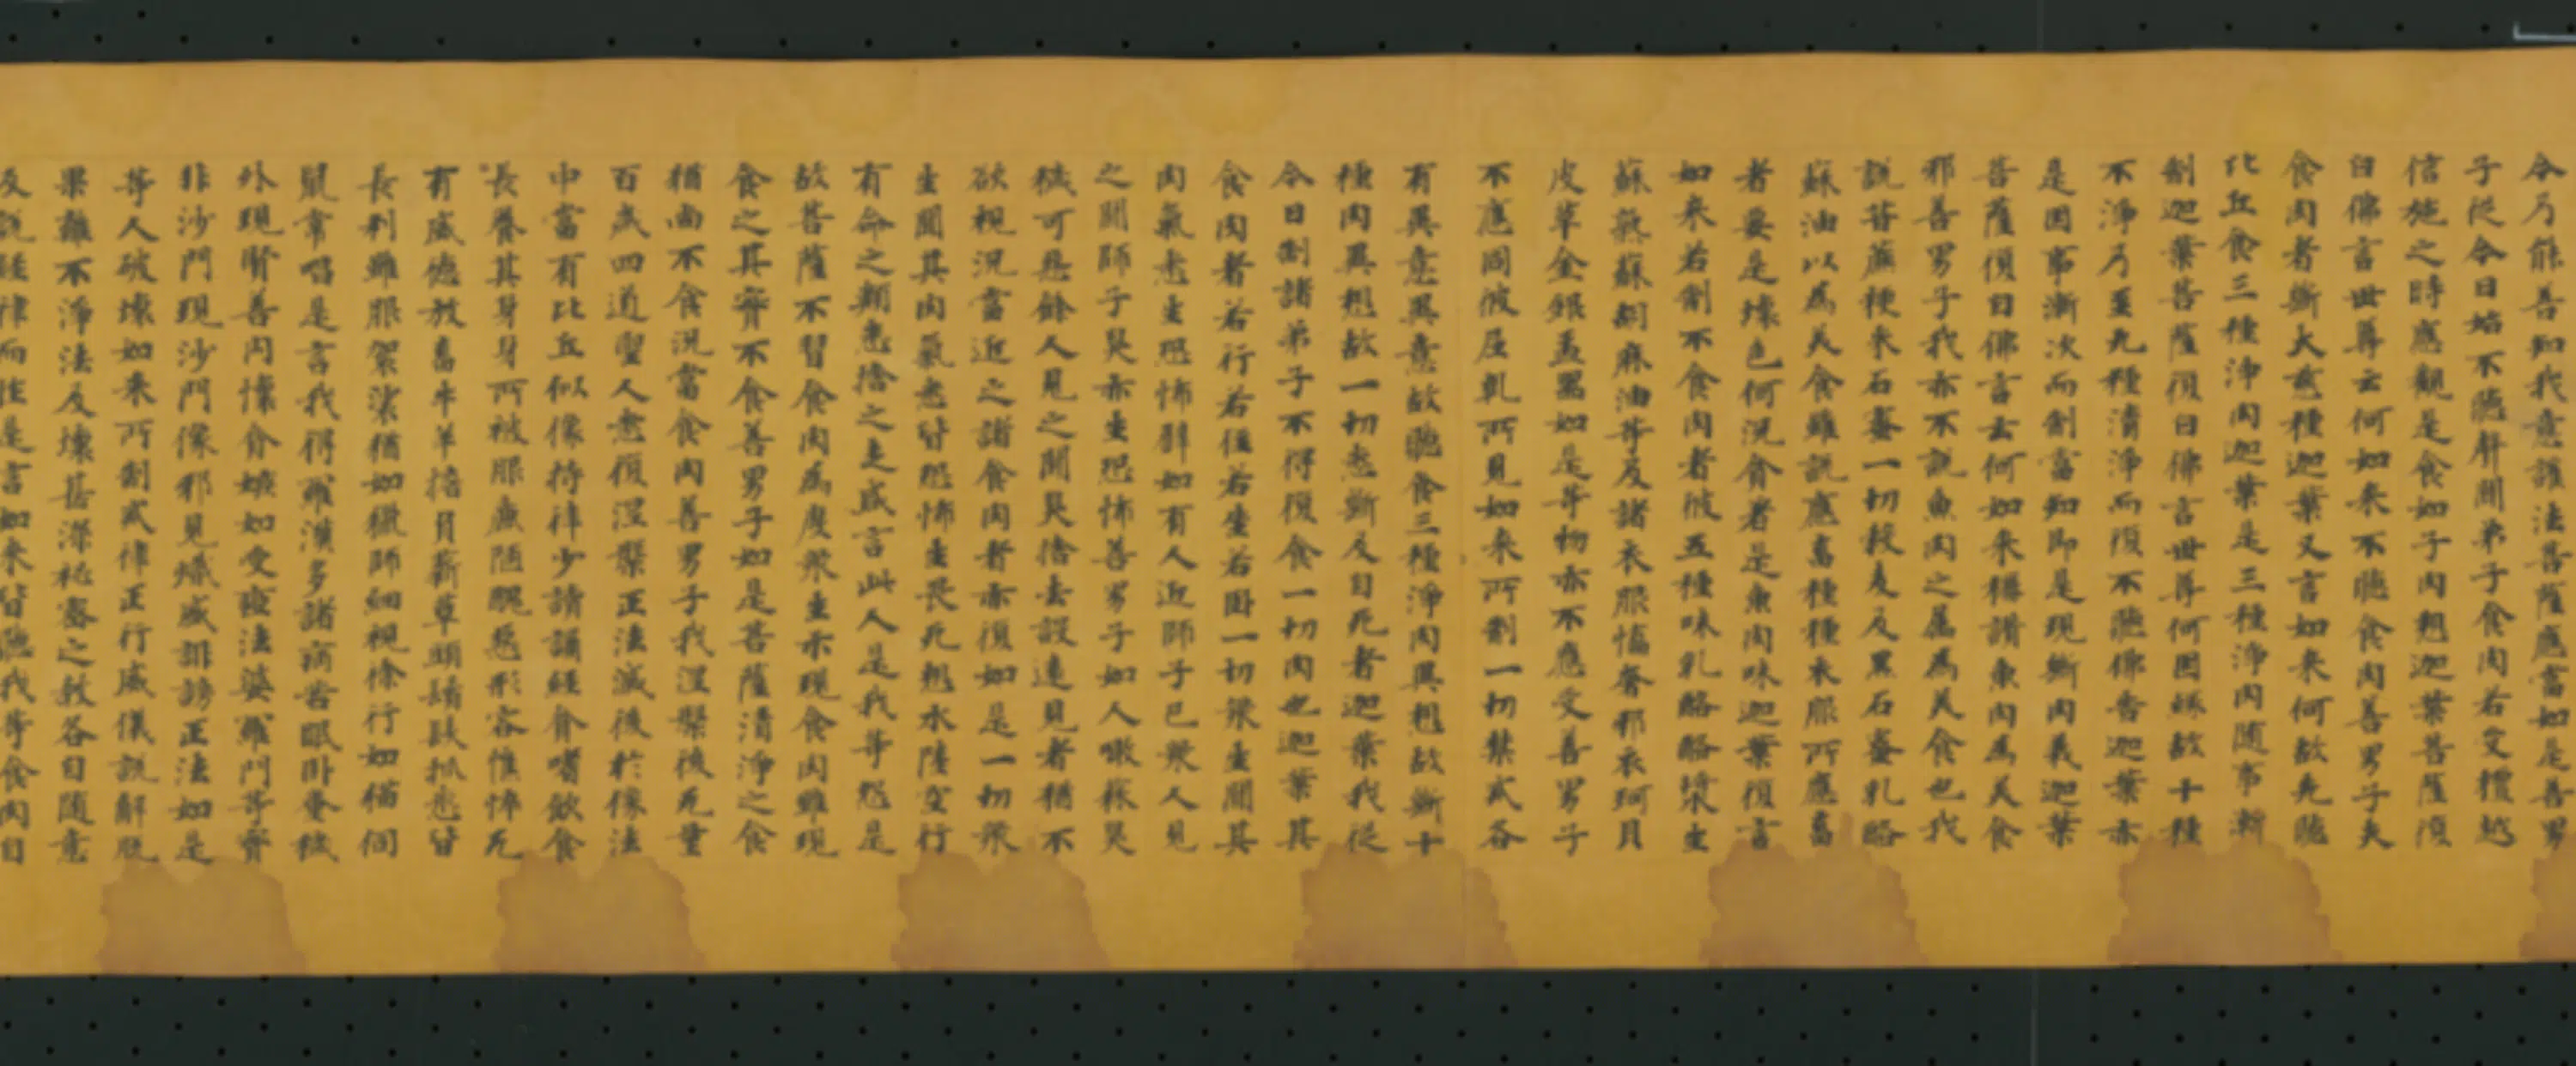 今乃能善知我意護法菩薩應當如是善男
子從今日始不聽聲聞弟子食肉若受檀越
信施之時應觀是食如子肉想迦葉菩薩復
白佛言世尊云何如来不聽食肉善男子夫
食肉者斷大慈種迦葉又言如来何故先聽
比丘食三種淨肉迦葉是三種淨肉随事漸
制迦葉菩薩復白佛言世尊何因緣故十種
不淨乃至九種清淨而復不聽佛告迦葉亦
是因事漸次而制當知即是現斷肉義迦葉
菩薩復白佛言云何如来稱讃魚肉為美食
邪善男子我亦不說魚肉之属為美食也我
說甘蔗粳米石蜜一切穀麦及黑石蜜乳酪
蘇油以為美食雖說應畜種種衣服所應畜
者要是壞色何況貪著是魚肉味迦葉復言
如来若制不食肉者彼五種味乳酪酪漿生
蘇熟蘇胡麻油等及諸衣服憍奢邪衣珂貝
皮革金銀盂器如是等物亦不應受善男子
不應同彼尼乹所見如来所制一切禁戒各
有異意異意故聽食三種淨肉異想故斷十
種肉異想故一切悉斷及自死者迦葉我從
今日制諸弟子不得復食一切肉也迦葉其
食肉者若行若住若坐若卧一切眾生聞其
肉氣悉生恐怖譬如有人近師子已眾人見
之聞師子臭亦生恐怖善男子如人噉蒜臭
穢可惡餘人見之聞臭捨去設遠見者猶不
欲視況當近之諸食肉者亦復如是一切眾
生聞其肉氣悉皆恐怖生畏死想水陸空行
有命之類悉捨之走咸言此人是我等怨是
故菩薩不習食肉為度眾生示現食肉雖現
食之其實不食善男子如是菩薩清淨之食
猶尚不食況當食肉善男子我涅槃後无量
百歲四道聖人悉復涅槃正法滅後於像法
中當有比丘似像持律少讀誦經貪嗜飲食
長養其身身所被服麁陋醜惡形容憔悴无
有威德放畜牛羊擔負薪草頭鬚髮抓悉皆
長利雖服袈裟猶如獵師細視徐行如猫伺
鼠常唱是言我得羅漢多諸病苦眠卧糞穢
外現賢善内懷貪嫉如受瘂法婆羅門等實
非沙門現沙門像邪見熾盛誹謗正法如是
等人破壞如来所制戒律正行威儀說解脱
果離不淨法及壞甚深秘密之教各自随意
反說經律而作是言如来皆聽我等食肉自